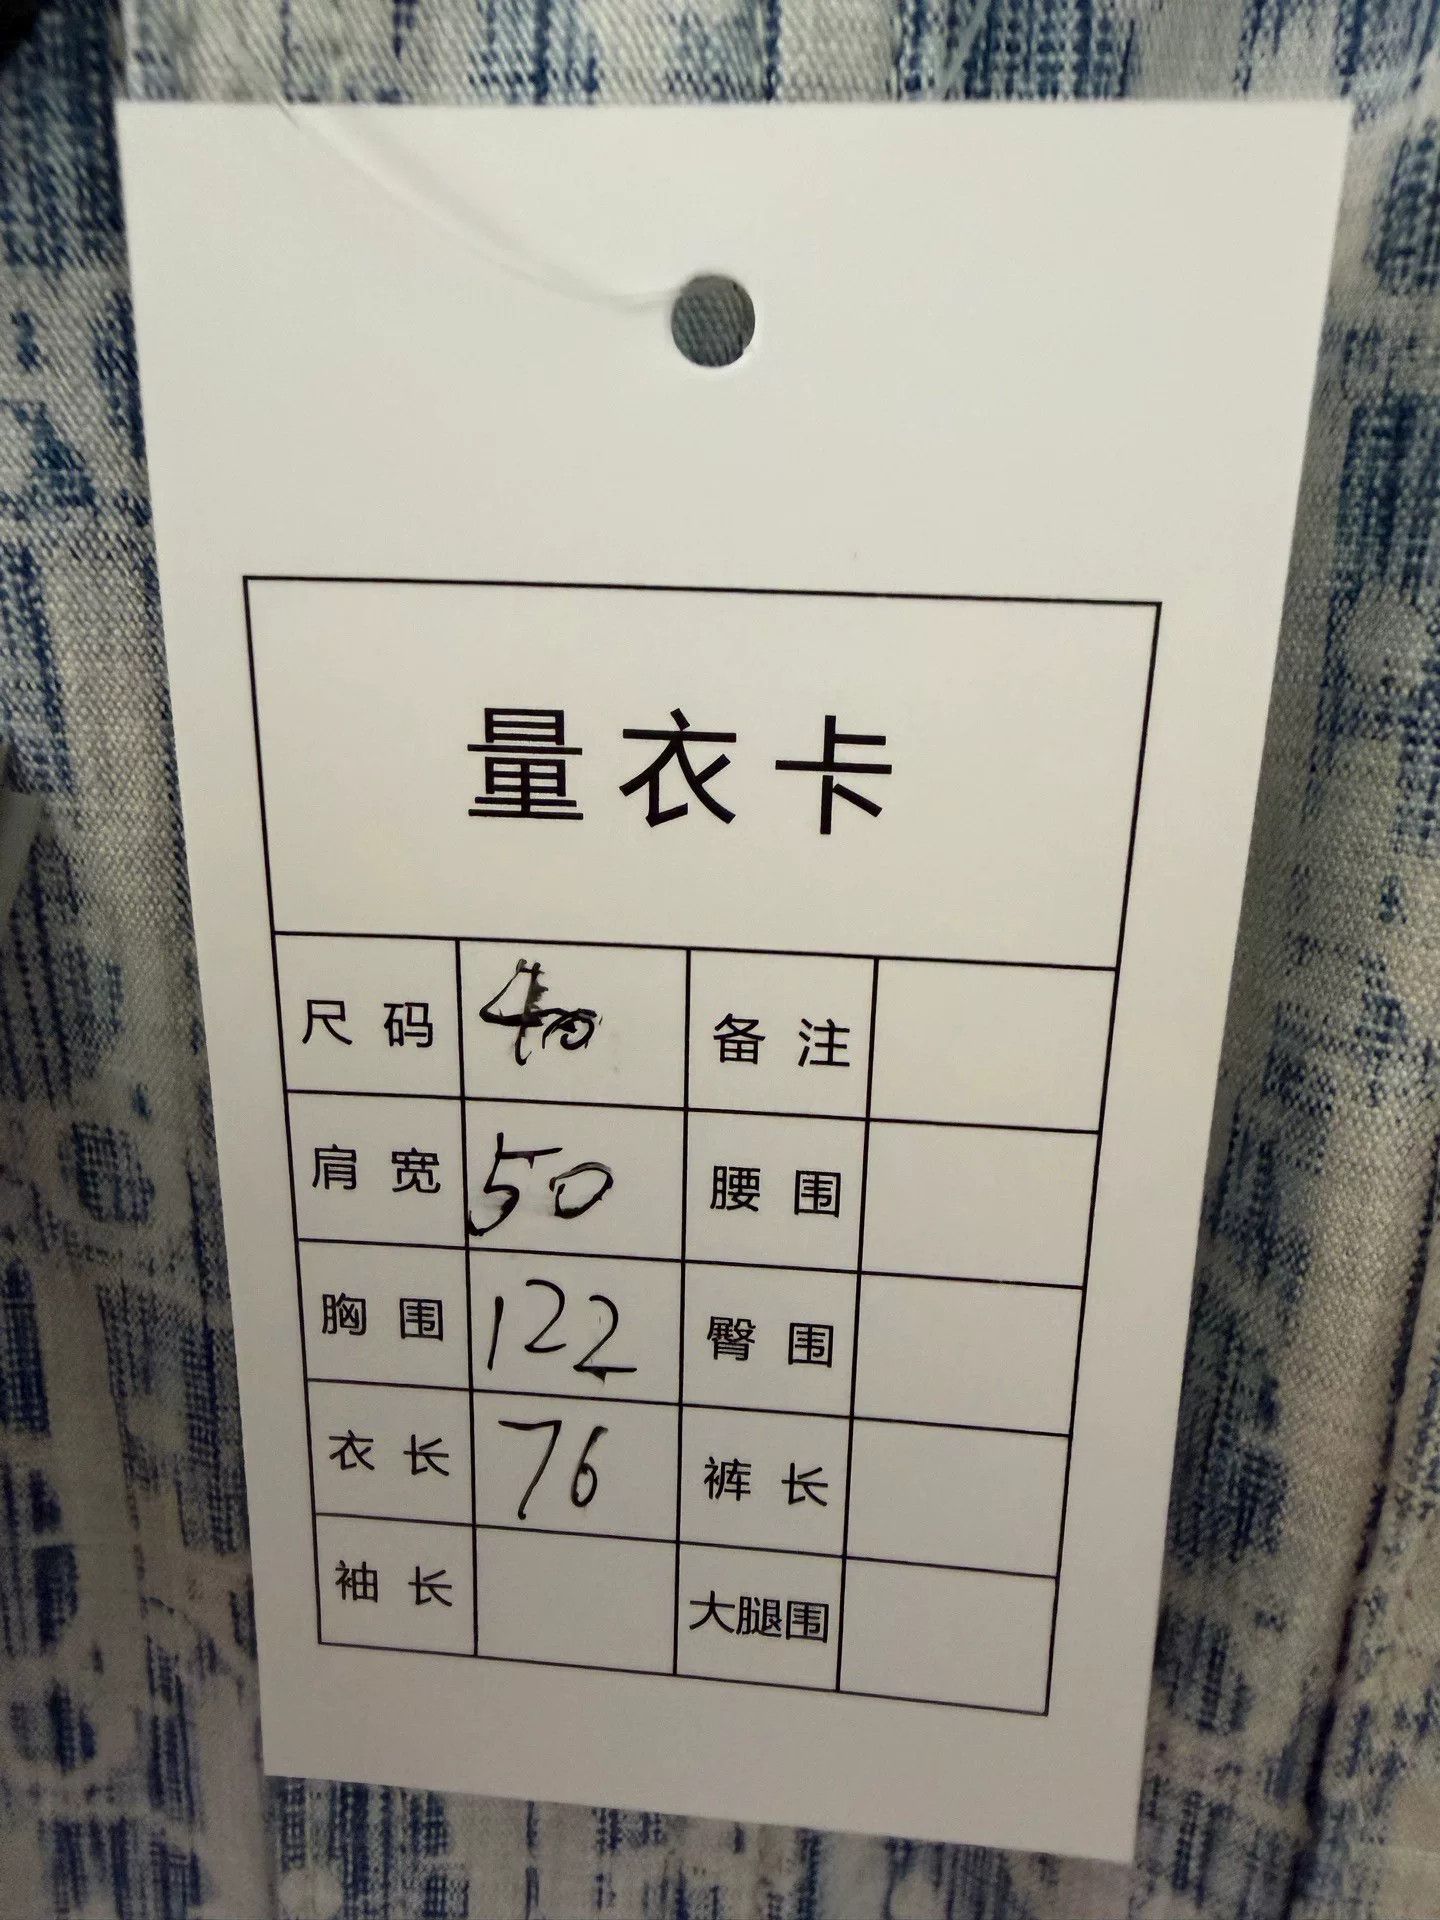 量衣卡
尺码 40 备注
肩宽 50 腰围
胸围 122 臀围
衣长 76 裤长
袖长 大腿围